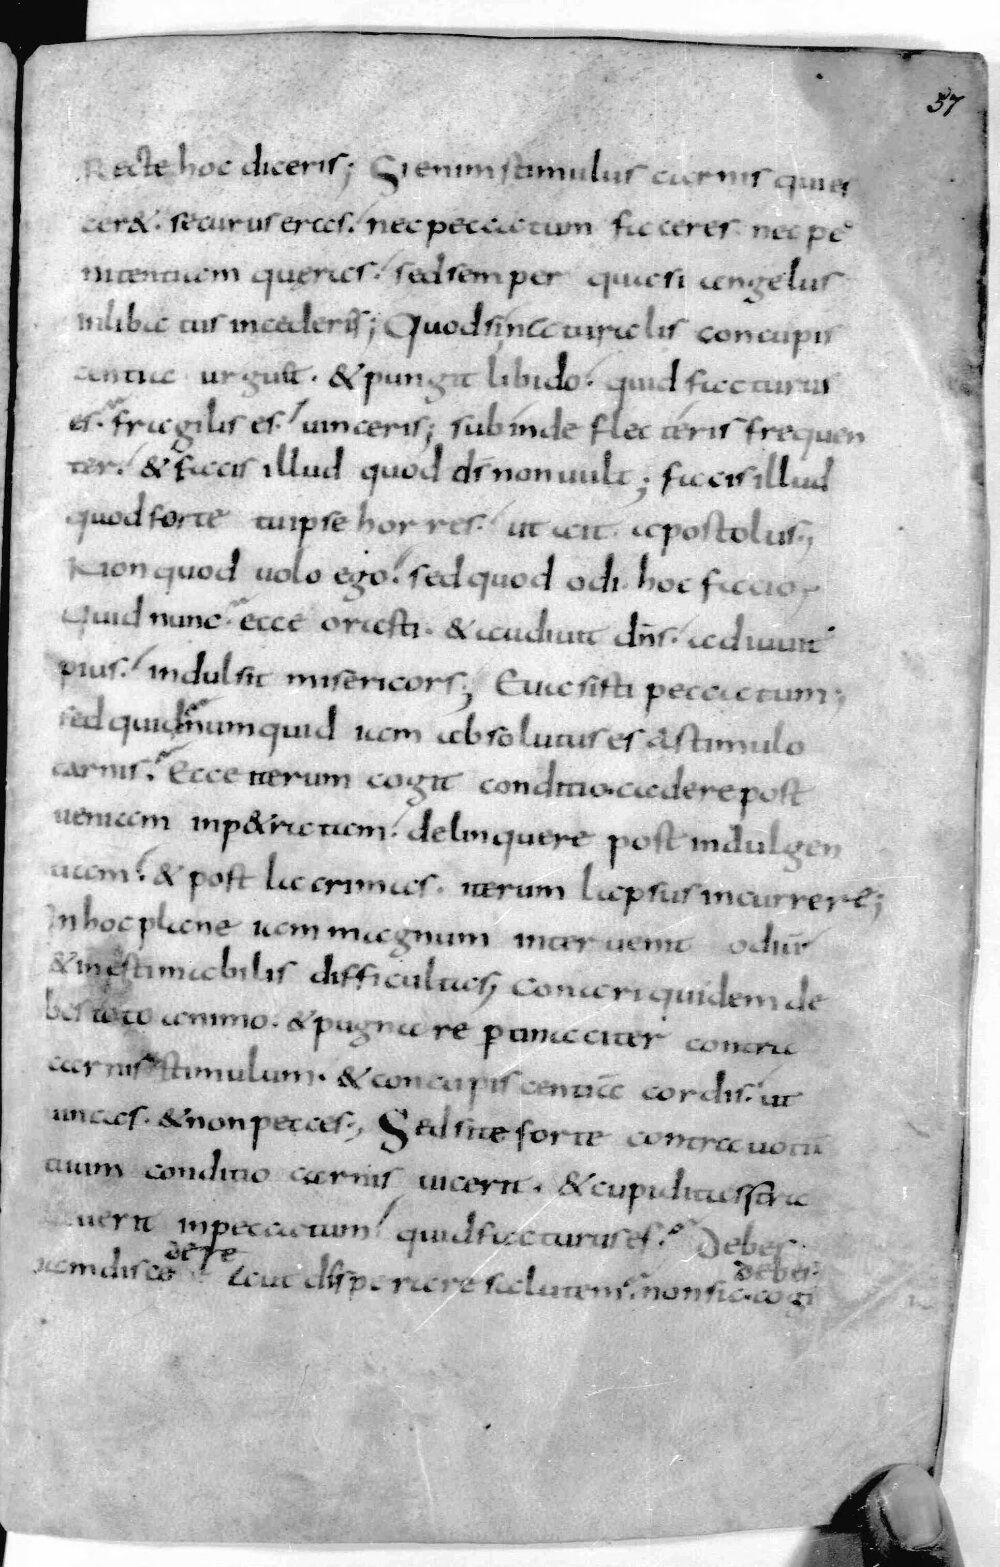 57
Recte hoc diceris; Si enim stimulus carnis quies
cer&. securus eras. nec peccatum faceres nec pe
nitentiam queras. sed semper quasi angelus
inlibatus incederis; Quod si naturalis concupis
centia urgu&. & pungit libido. quid facturus
es. fragilis es. uinceris; subinde flecteris frequen
ter. & facis illud quod ds non uult; facis illud
quod forte tu ipse horres. ut ait apostolus;
Non quod uolo ego. sed quod odi. hoc facio;
Quid nunc. ecce orasti. & audiuit dns. adiuuit
pius. indulsit misericors; Euasisti peccatum;
sed quid numquid iam absolutus es a stimulo
carnis. Ecce iterum cogit conditio. cadere post
ueniam inp&ratam. delinquere post indulgen
tiam. & post lacrimas. iterum lapsus incurrere;
In hoc plane iam magnum interuenit odiū
& inęstimabilis difficultas; Conari quidem de
bes toto animo. & pugnare ptinaciter contra
carnis stimulum. & concupiscentiā cordis. ut
uincas. & non pecces; Sed si te forte contra uotū
tuum conditio carnis uicerit. & cupiditas stra
uerit in peccatum. quid facturus es. Debes
iam discedere aut disperare salutem. non sic. cogi
debes